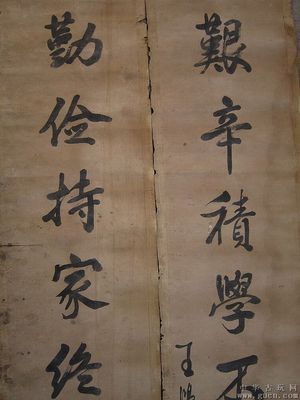 艱辛積學
勤俭持家終
王
中华古玩网
www.gucn.com